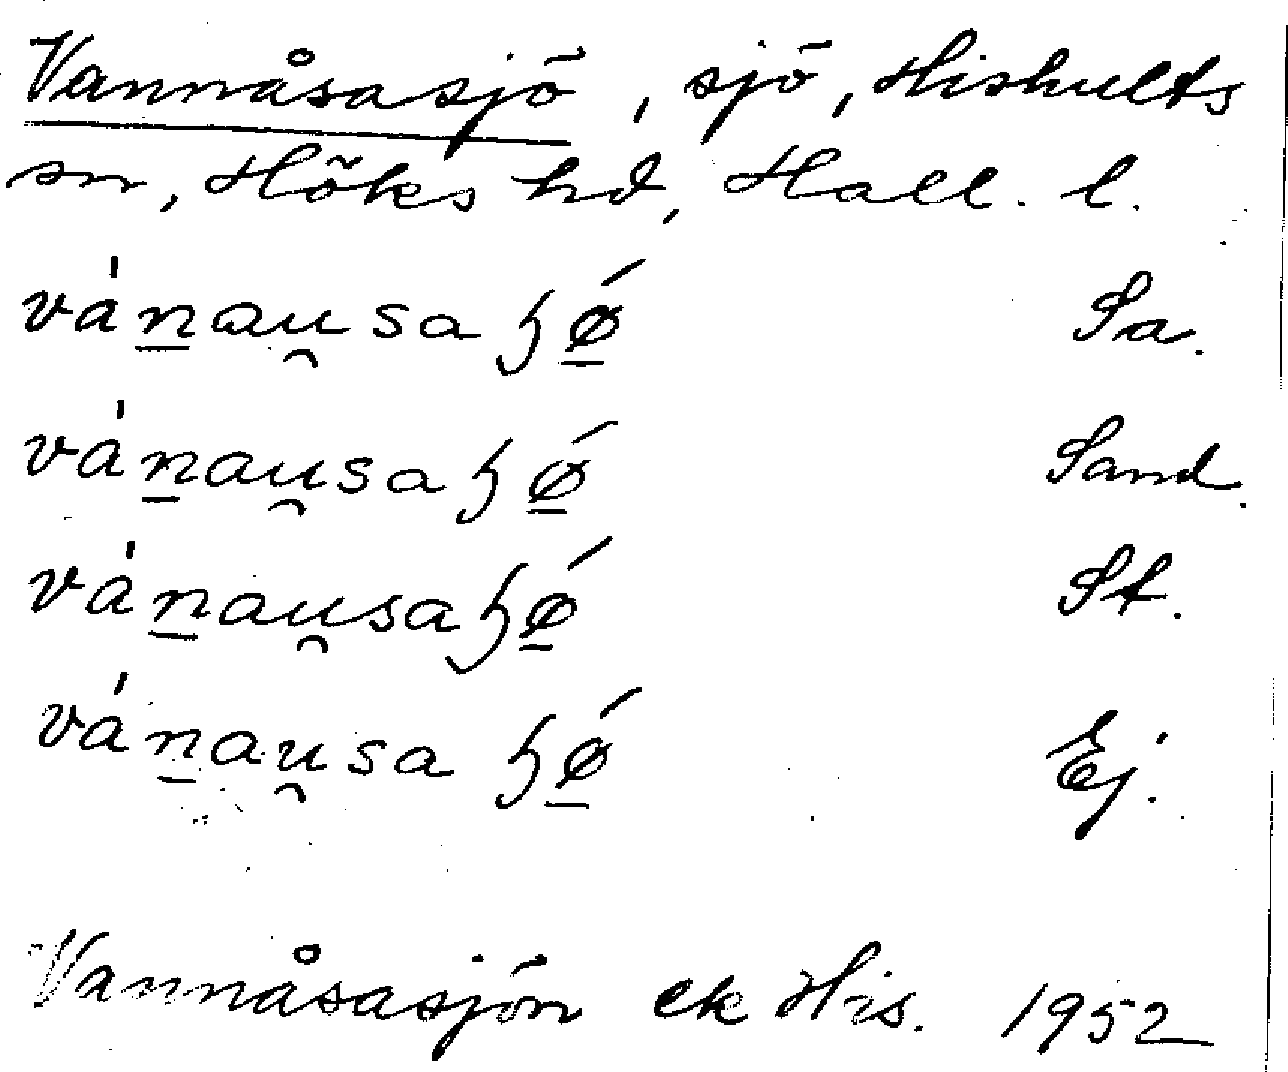 Vannåsasjö, sjö, Hishults
sn, Höks hd, Hall. l.
vánau̯saʒǿ Sa.
vánau̯saʒǿ Sand.
vánau̯saʒǿ St.
vánau̯saʒǿ Ej.
Vannåsasjön ek His. 1952